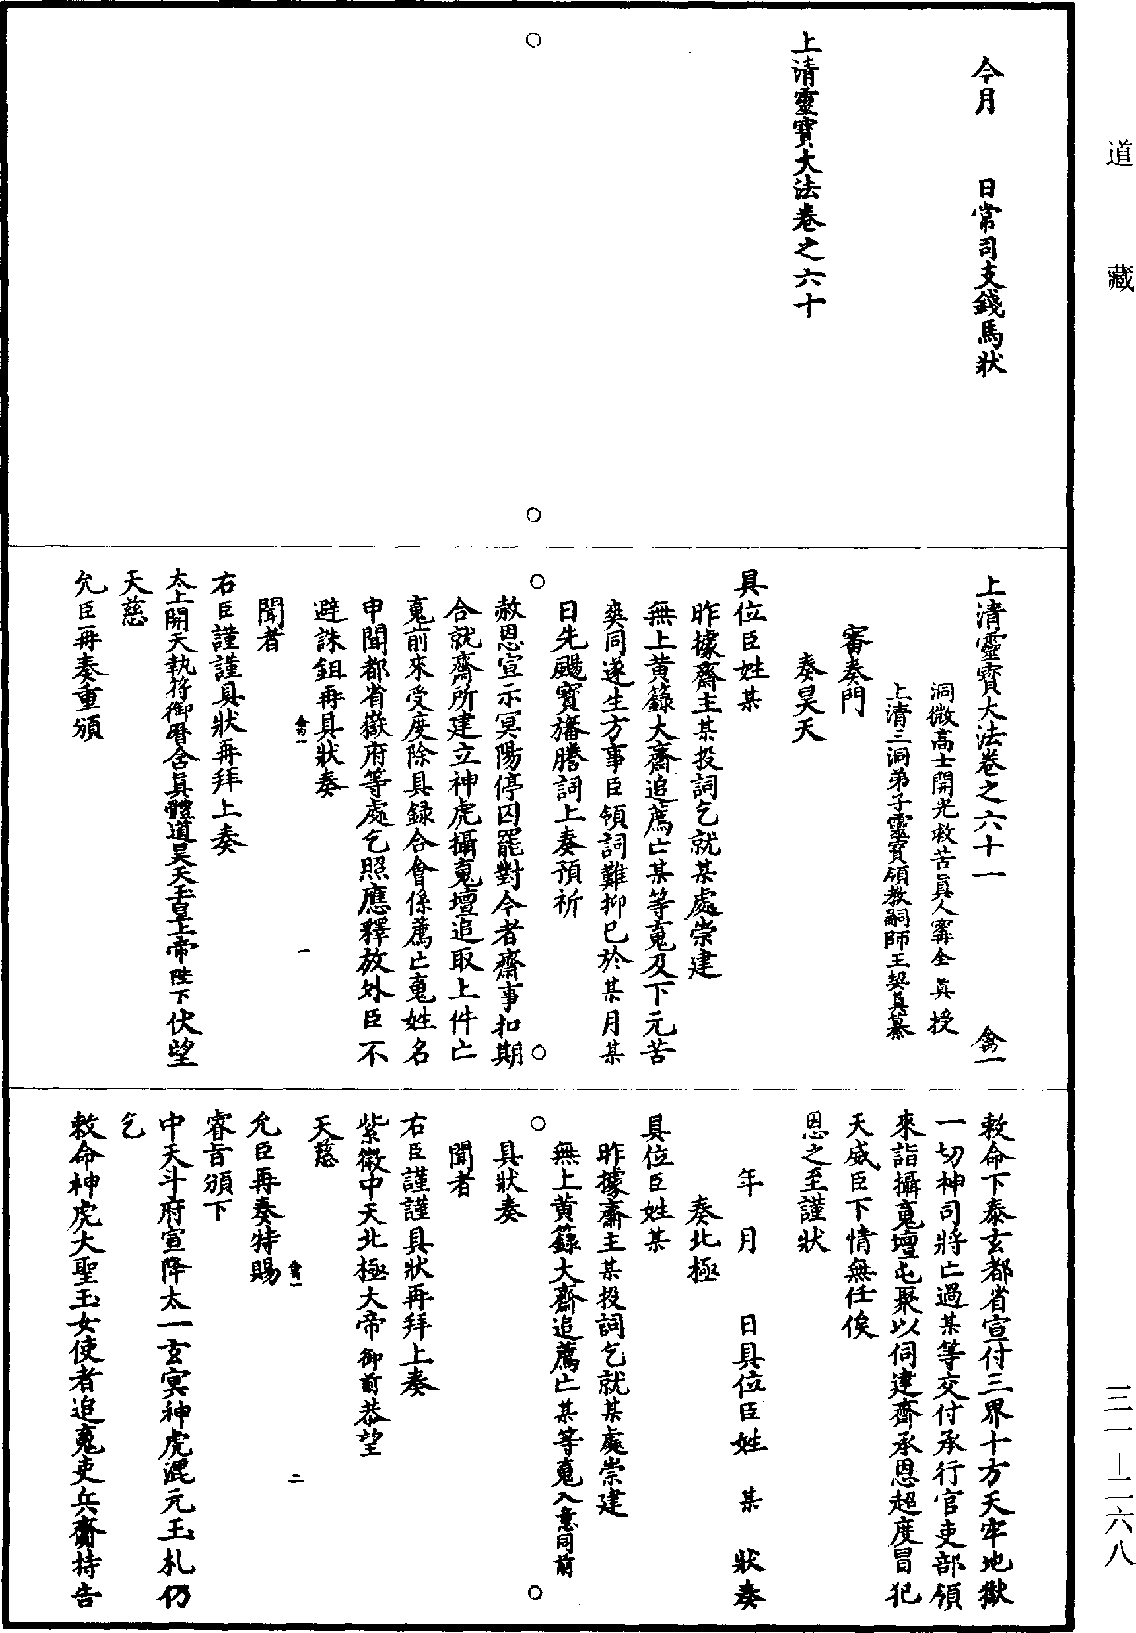 道藏
今月　　日常司支錢馬狀
上清靈寶大法卷之六十
上清靈寶大法卷之六十一　禽一
洞微高士開光救苦眞人甯全眞授
上清三洞弟子靈寶領教嗣師王契眞纂
審奏門
奏昊天
具位臣姓某
昨據齋主某投詞乞就某處崇建
無上黄籙大齋追薦亡某等䰟及下元苦
爽同遂生方事臣領詞難抑已於某月某
日先颺寶旛謄詞上奏預祈
赦恩宣示冥陽停囚罷對今者齋事扣期
合就齋所建立神虎攝䰟壇追取上件亡
䰟前來受度除具録合會係薦亡䰟姓名
申聞都省嶽府等處乞照應釋放外臣不
避誅鉏再具狀奏
禽一
一
聞者
右臣謹謹具狀再拜上奏
太上開天執符御曆含眞體道昊天玉皇上帝陛下伏望
天慈
允臣再奏重頒
敕命下泰玄都省宣付三界十方天牢地獄
一切神司將亡過某等交付承行官吏部領
來詣攝䰟壇屯聚以伺建齋承恩超度冒犯
天威臣下情無任俟
恩之至謹狀
年　月　　日具位臣姓　某　狀奏
奏北極
具位臣姓某
昨據齋主某投詞乞就某處崇建
無上黄籙大齋追薦亡某等䰟入意同前
具狀奏
聞者
右臣謹謹具狀再拜上奏
紫微中天北極大帝御前恭望
天慈
禽一
二
允臣再奏特賜
睿旨頒下
中天斗府宣降太一玄冥神虎混元玉札仍
乞
敕命神虎大聖玉女使者追䰟吏兵齎持告
三一—二六八